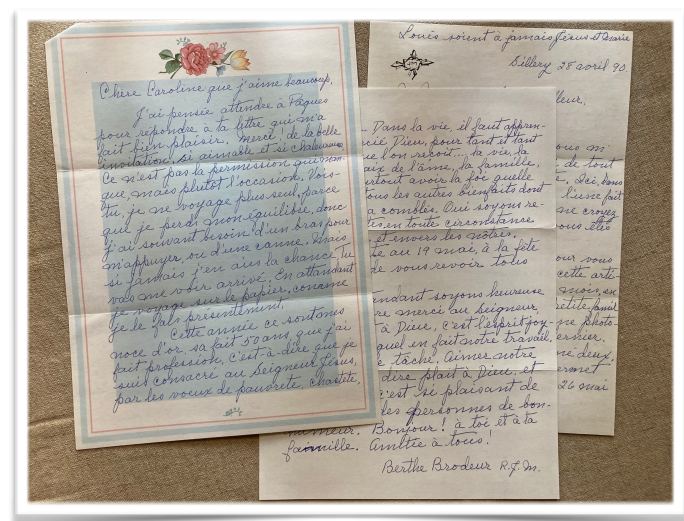 Chère Caroline que j'aime beaucoup,
J'ai pensée attendre à Pâques
pour répondre à ta lettre qui m'a
fait bien plaisir. Merci! de la belle
invitation, si aimable et si chaleureuse
Ce n'est pas la permission qui man-
que, mais plutôt l'occasion. Vois-
tu, je ne voyage plus seul, parce
que je perds mon équilibre, donc
j'ai souvant besoin d'un bras pour
m'appuyer, ou d'une canne. Mais
si jamais j'en ai la chance Tu
vas me voir arrivé. En attendant
je voyage sur le papier, comme
je le fais présentement.
Cette année ce sont mes
noce d'or, sa fait 50 ans, que j'ai
fait profession, c'est-à-dire que je
suis consacré au Seigneur Jésus,
par les voeux de pauvreté, chasteté,
Dans la vie, il faut appren-
cié Dieu, pour tant et tant
que l'on reçoit... la vie, la
aix de l'âme, la famille.
urtout avoir la foi quelle
ous les autres bienfaits dont
a comblés. Oui soyons re-
ts en toute circonstance
et envers les nôtres.
te au 19 mai, à la fête
de vous revoir tous
endant soyons heureuse
re merci au Seigneur,
à Dieu, c'est l'esprit joy-
quel en fait notre travail,
e tâche. Aimer notre
dire plait à Dieu, et
c'est si plaisant de
des personnes de bon-
humeur. Bonjour! à toi et à ta
famille. Amitée à tous!
Berthe Brodeur R.J.M.
Loués soient à jamais Jésus et Marie
Sillery 28 avril 90.
leur,
ous m'
de tout
Ici, nous
l'une fait
me croyez
ous êtes
our vous
cette arti-
mois, en
petite famil
ne photo-
ernier.
ne deux.
ermet
26 mai